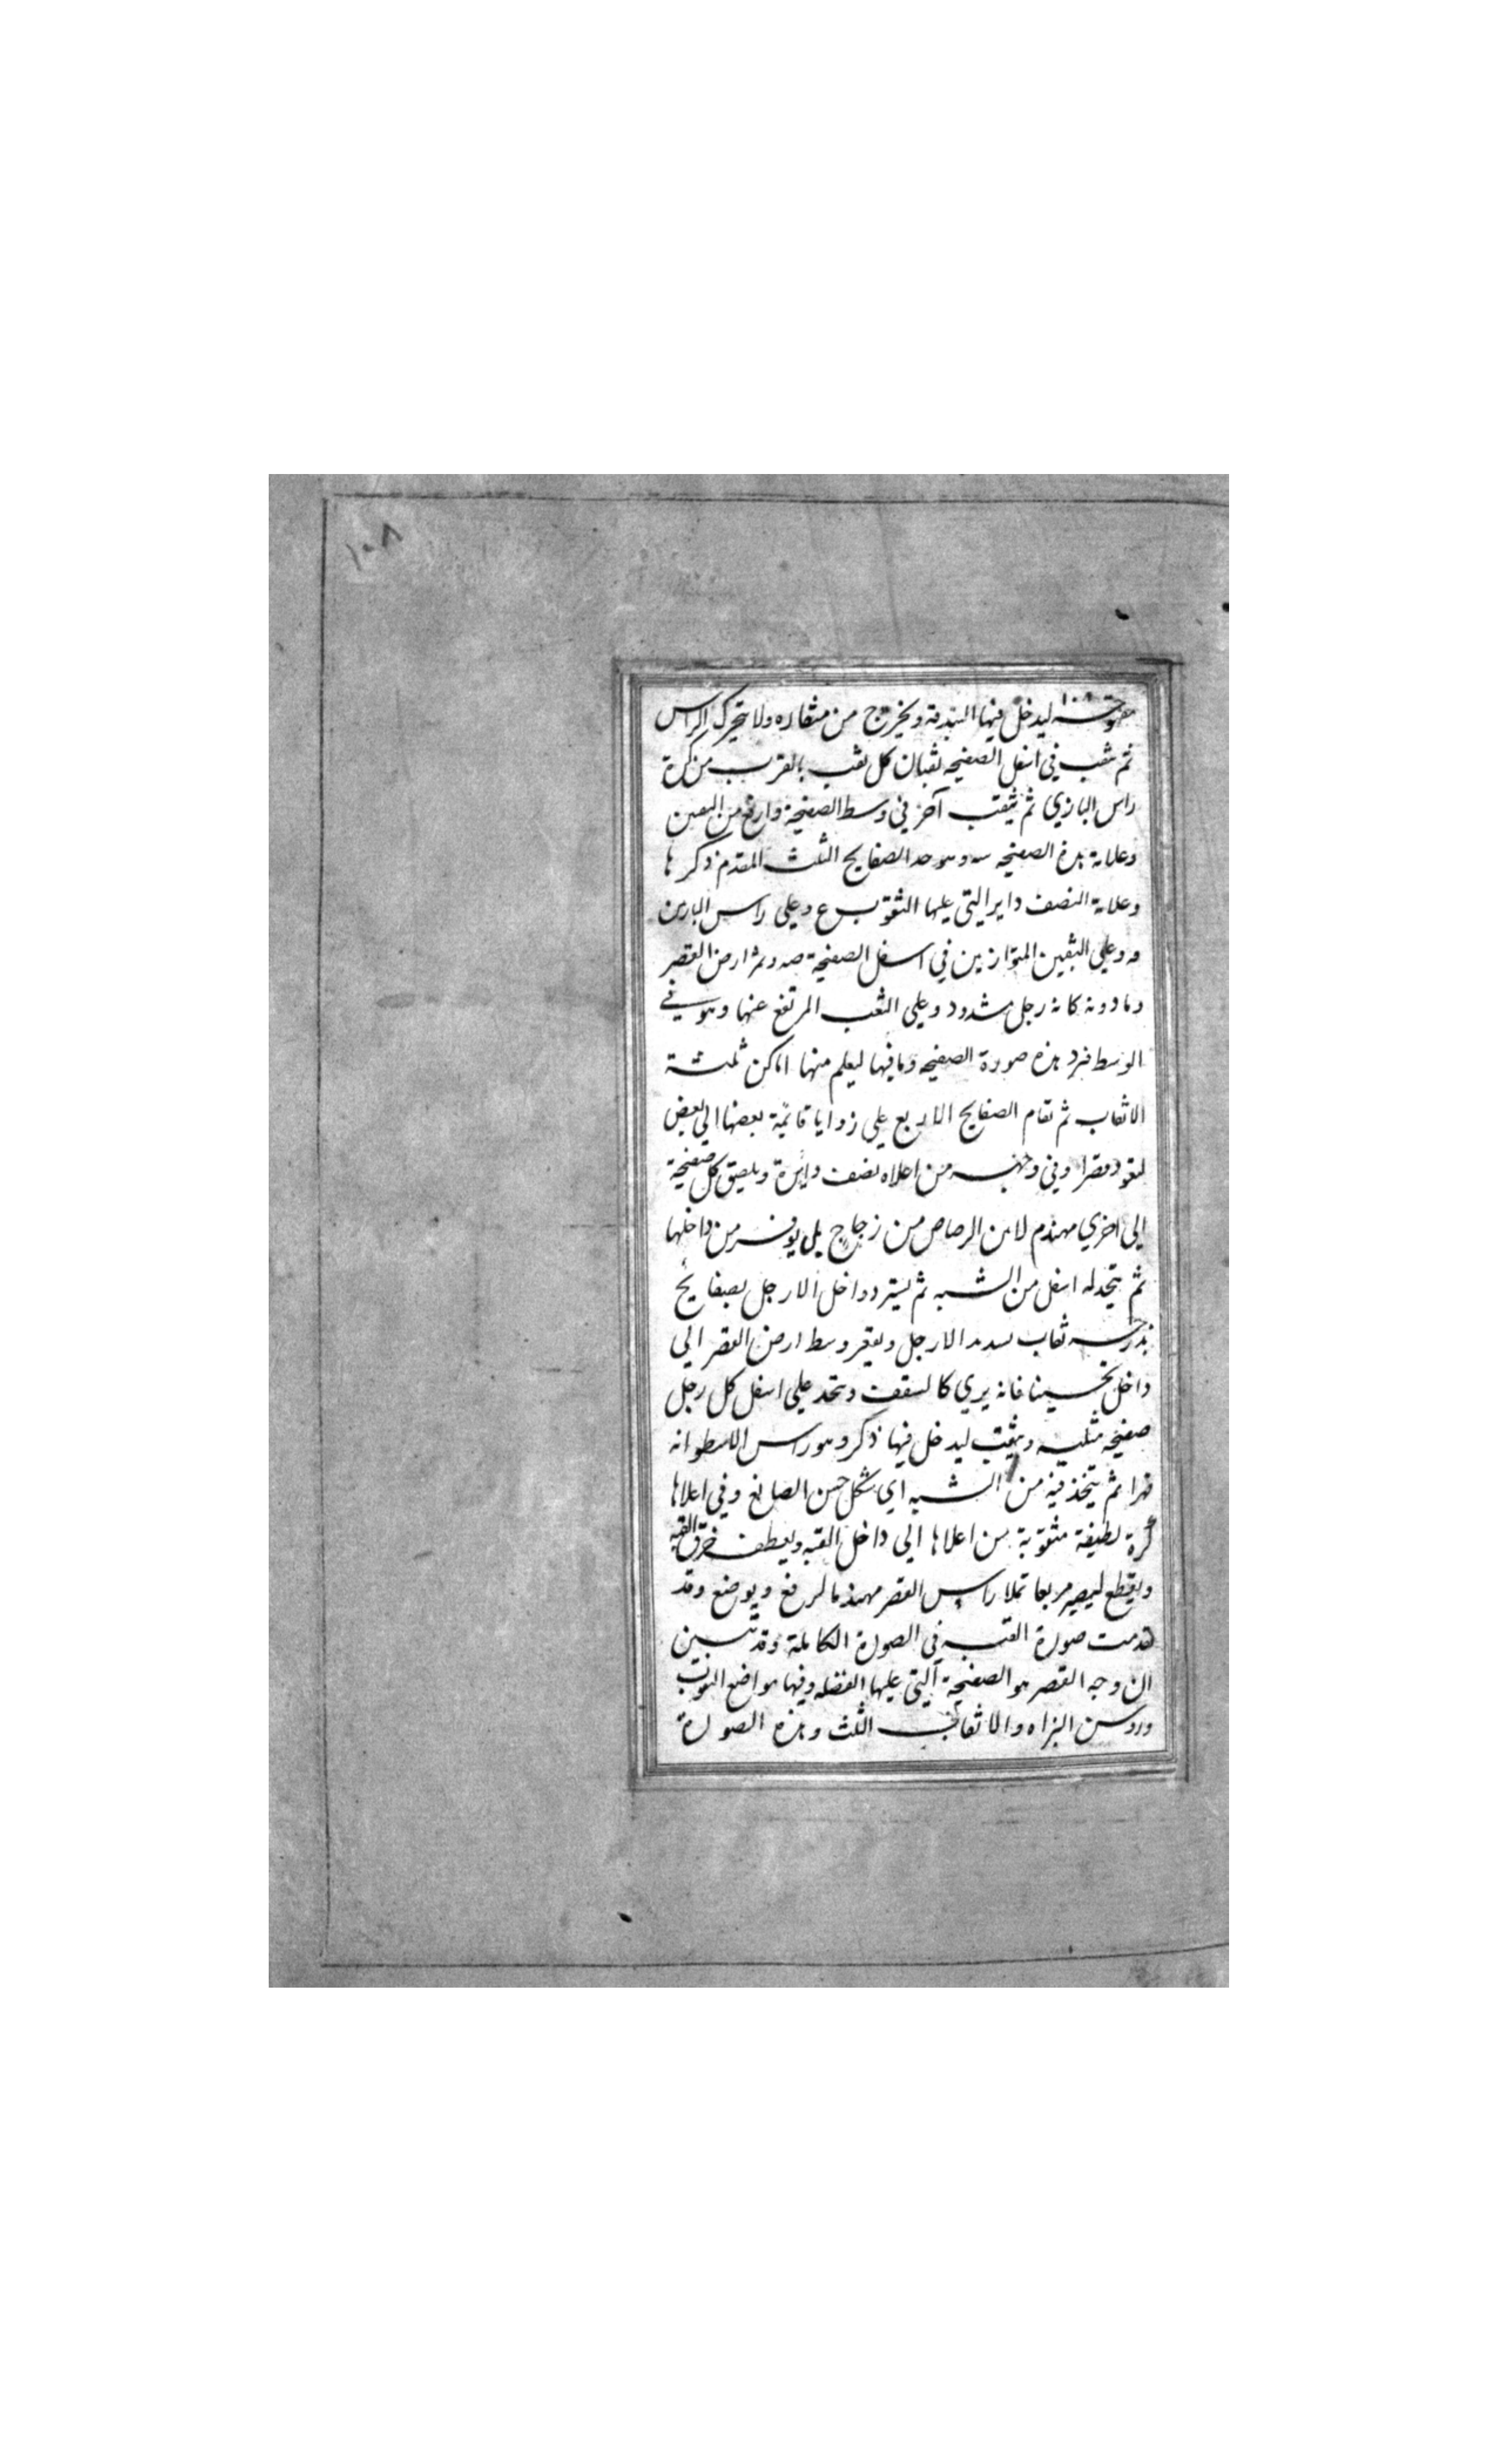 ١٠٨
١٠٨
مفتوحة ليدخل فيها البندقة ويخرج من منقاره ولا يتحرك الراس
ثم يثقب في اسفل الصفيحه ثقبان كل ثقب بالقرب من كرة
راس البازي ثم يثقب آخر في وسط الصفيحة وارفع من الثقبين
وعلامة هذه الصفيحه سه وهو حد الصفايح الثلث المقدم ذكرها
وعلامة النصف داير التي عليها الثقوب ع وعلي راس البازين
وعلي الثقبين المتوازيين في اسفل الصفيحة صه ارض القصر
ومادونه كانه رجل مشدود وعلي الثقب المرتفع عنها وهو في
الوسط فرد هذه صورة الصفيحه وما فيها ليعلم منها اماكن ثلثة
الاثقاب ثم تقام الصفايح الاربع علي زوايا قايمة بعضها الي بعض
لتعود قصرا وفي وجهه من اعلاه نصف دايرة ويلصق كل صفيحة
الي اخري مهندم لا من الرصاص من زجاج بل من داخلها
ثم يتخد له اسفل من الشبه ثم يستر داخل الارجل بصفايح
ثقاب الارجل ويقعر وسط ارض القصر الي
داخل تحسينا فانه يري كالسقف ويتخد علي اسفل كل رجل
صفيحه مثلثه ويثقب ليدخل فيها ذكر وهو راس الاسطوانه
قهرا ثم يتخذ قبه من الشبه اي شكل حسن الصانع وفي اعلاها
كرة لطيفة مثقوبة من اعلاها الي داخل القبه ويعطف خرق القبه
ويقطع ليصير مربعا تملا راس القصر مهندما لرفع ويوضع وقد
تقدمت صورة القبه في الصورة الكاملة وقد تبين
ان وجه القصر هو الصفيحة التي عليها الفضله وفيها مواضع البيوت
وروس البزاه والاثقاب الثلث وهذه الصورة